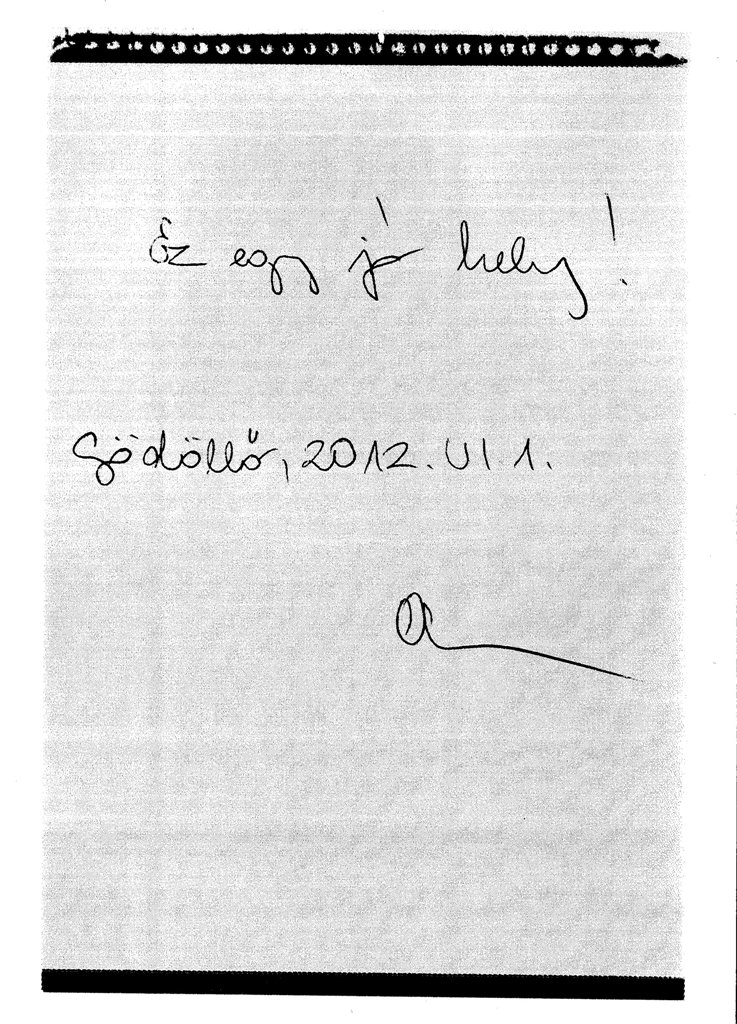 Ez egy jó hely!
Gödöllő, 2012. VI 1.